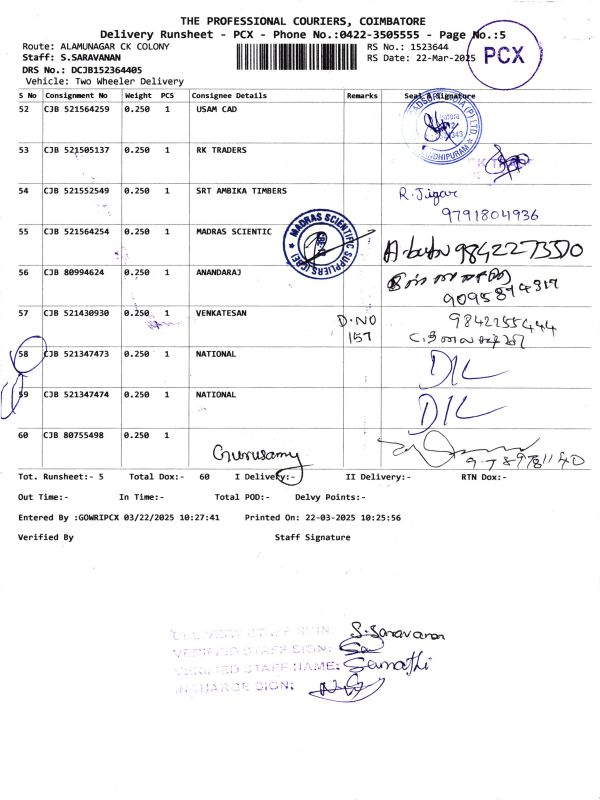 THE PROFESSIONAL COURIERS, COIMBATORE
Delivery Runsheet - PCX - Phone No.:0422-3505555 - Page No.:5
Route: ALAMUNAGAR CK COLONY
RS No.: 1523644
Staff: S.SARAVANAN
RS Date: 22-Mar-2025
PCX
DRS No.: DCJB152364405
Vehicle: Two Wheeler Delivery
S No Consignment No Weight PCS Consignee Details Remarks Seal & Signature
52 CJB 521564259 0.250 1 USAM CAD
53 CJB 521505137 0.250 1 RK TRADERS
54 CJB 521552549 0.250 1 SRT AMBIKA TIMBERS R. Jigar
9791804936
55 CJB 521564254 0.250 1 MADRAS SCIENTIC
MADRAS SCIENTIFIC SUPPLIERS (CBE)
56 CJB 80994624 0.250 1 ANANDARAJ
57 CJB 521430930 0.250 1 VENKATESAN D.NO 157
9842255444
58 CJB 521347473 0.250 1 NATIONAL D/L
59 CJB 521347474 0.250 1 NATIONAL D/L
60 CJB 80755498 0.250 1 Gurusamy
Tot. Runsheet:- 5 Total Dox:- 60 I Delivery:- II Delivery:- RTN Dox:-
Out Time:- In Time:- Total POD:- Delvy Points:-
Entered By :GOWRIPCX 03/22/2025 10:27:41 Printed On: 22-03-2025 10:25:56
Verified By Staff Signature
DELIVERY STAFF SIGN: S.Saravanan
VERIFIED STAFF SIGN:
VERIFIED STAFF NAME: Sumathi
INCHARGE SIGN: